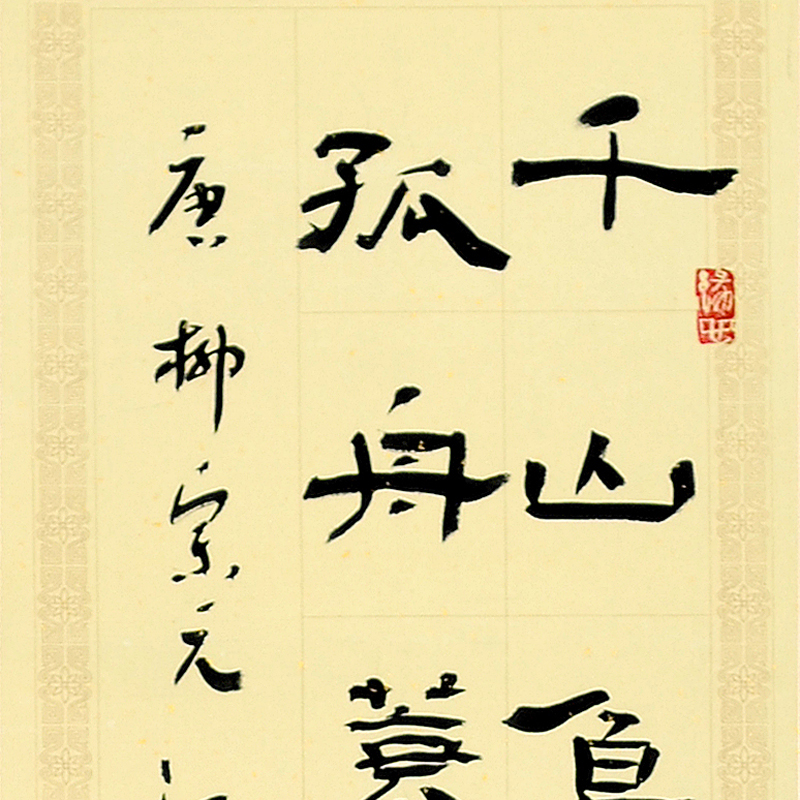 千山鳥
孤舟蓑
唐柳宗元